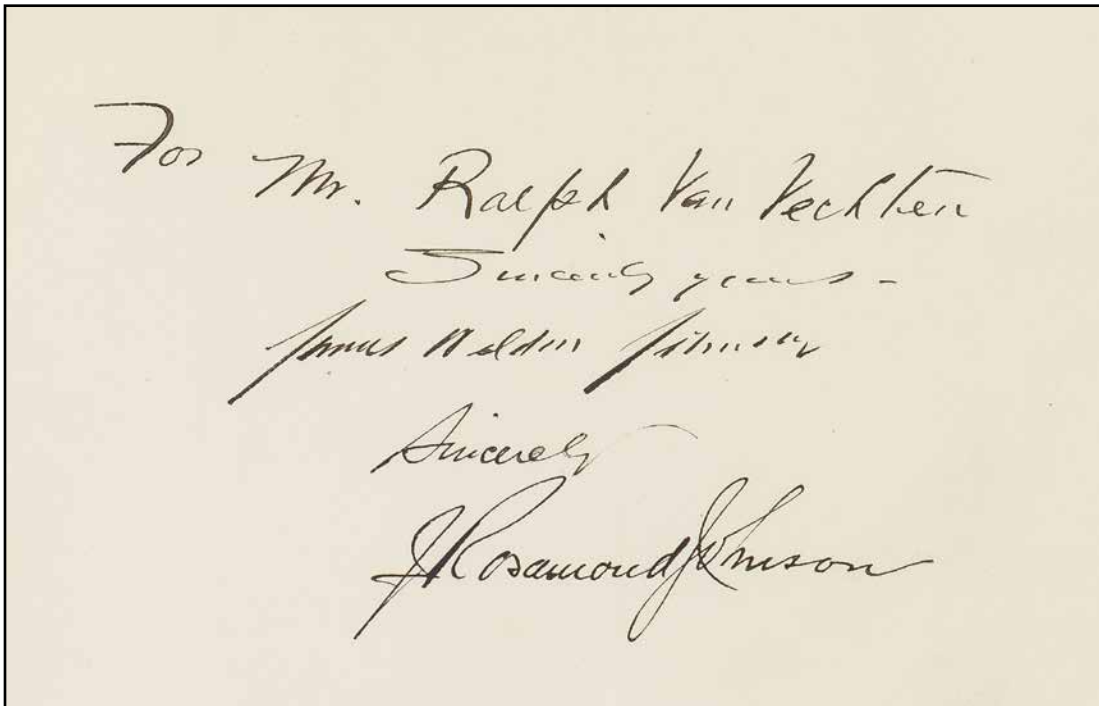 For
Mr. Ralph Van Vechten
Sincerely yours -
James Weldon Johnson
Sincerely
J Rosamond Johnson